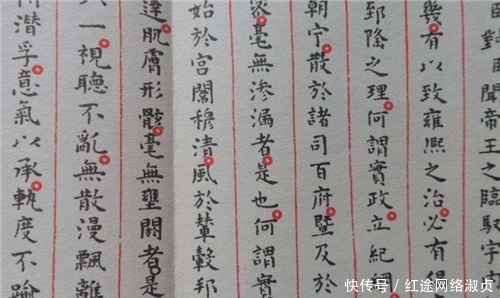 臣對臣聞帝王之臨馭宇
幾有以致雍熙之治必有得
郅隆之理何謂實政立紀綱
朝宁散於諸司百府暨及於
容毫無滲漏者是也何謂實
始於宮闈穆清風於輦轂邦
達肌膚形骸毫無壅閼者是
一視聽不亂無散漫飄離
潛孚意氣以承執度不踰
快传号/红途网络淑贞